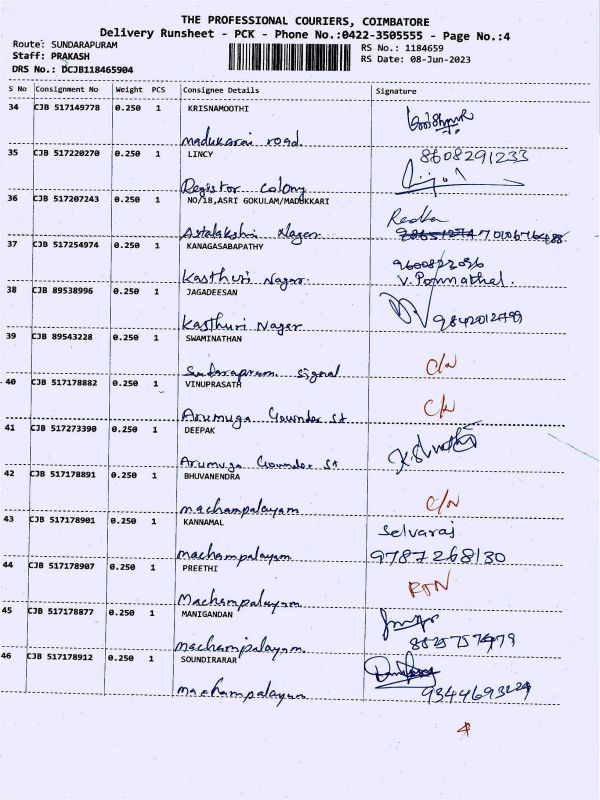 THE PROFESSIONAL COURIERS, COIMBATORE
Delivery Runsheet - PCK - Phone No.:0422-3505555 - Page No.:4
Route: SUNDARAPURAM RS No.: 1184659
Staff: PRAKASH RS Date: 08-Jun-2023
DRS No.: DCJB118465904
S No Consignment No Weight PCS Consignee Details Signature
34 CJB 517149778 0.250 1 KRISNAMOOTHI
madukarai road.
35 CJB 517220270 0.250 1 LINCY 8608291233
Register colony
36 CJB 517207243 0.250 1 NO/18,ASRI GOKULAM/MADUKKARI
Astalakshi Nagar
37 CJB 517254974 0.250 1 KANAGASABAPATHY
Kasthuri Nagar V. Ponnathal.
38 CJB 89538996 0.250 1 JAGADEESAN
Kasthuri Nagar
39 CJB 89543228 0.250 1 SWAMINATHAN
Sundarapuram signal
40 CJB 517178882 0.250 1 VINUPRASATH
Arumuga Gounder St
41 CJB 517273390 0.250 1 DEEPAK
Arumuga Gounder St
42 CJB 517178891 0.250 1 BHUVANENDRA
machampalayam
43 CJB 517178901 0.250 1 KANNAMAL Selvaraj
machampalayam 9787268130
44 CJB 517178907 0.250 1 PREETHI
Machampalayam
45 CJB 517178877 0.250 1 MANIGANDAN
machampalayam
46 CJB 517178912 0.250 1 SOUNDIRARAR
machampalayam